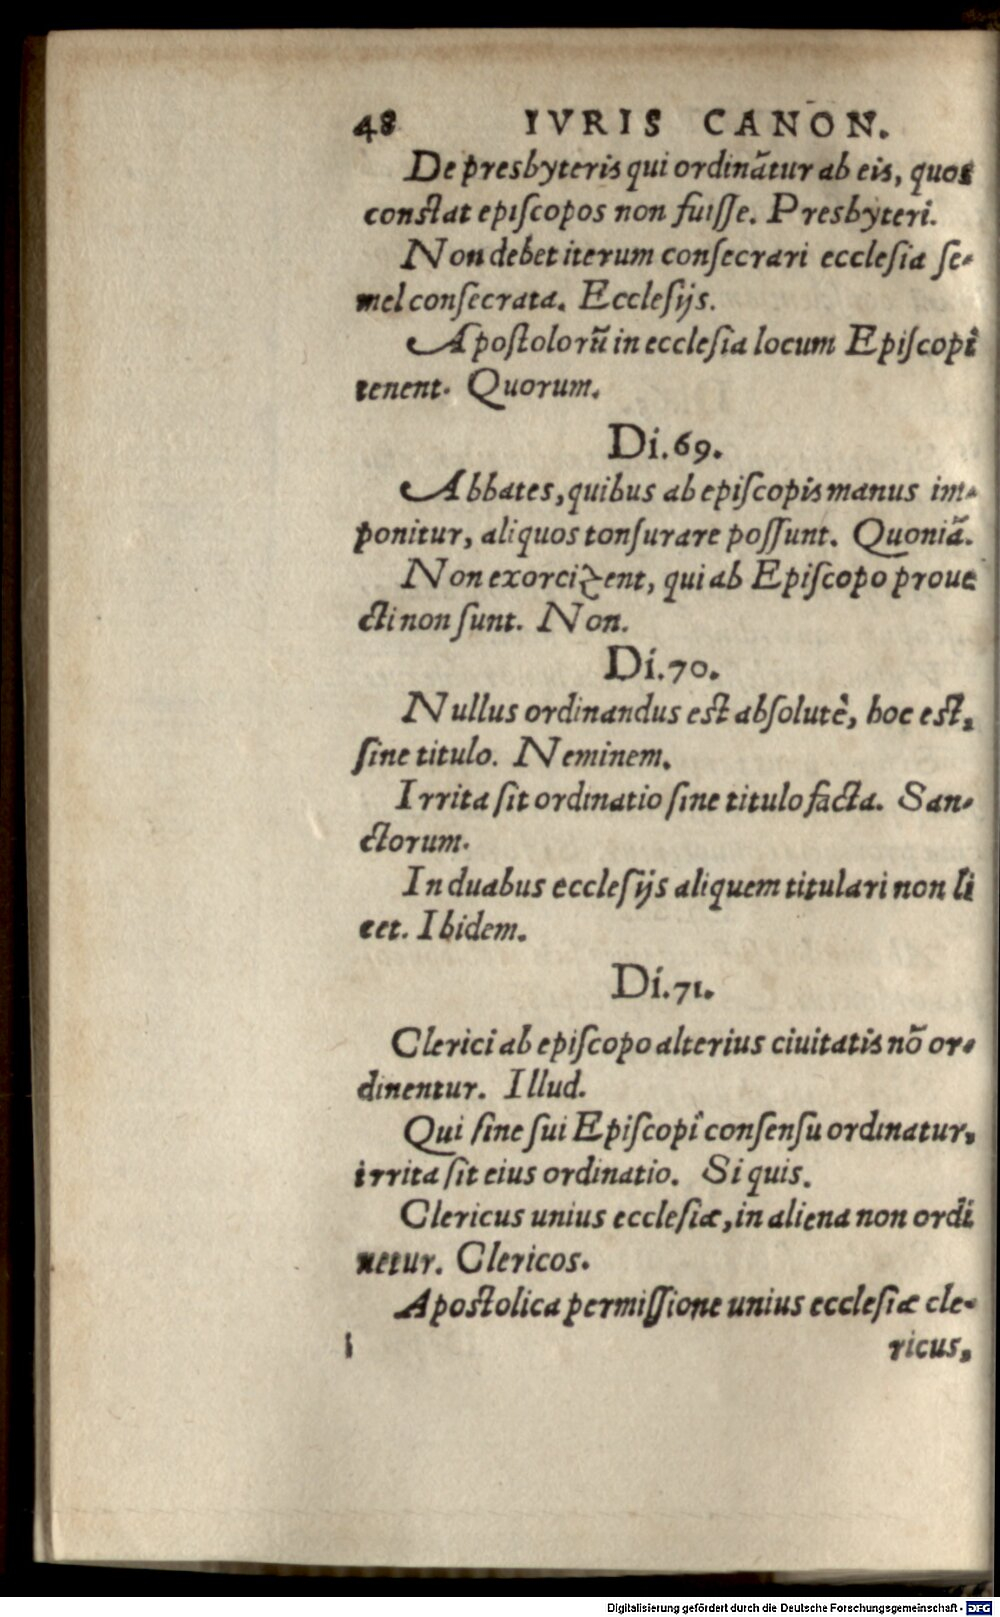 48 IVRIS CANON.
De presbyteris qui ordinātur ab eis, quos
constat episcopos non fuisse. Presbyteri.
Non debet iterum consecrari ecclesia se-
mel consecrata. Ecclesijs.
Apostolorū in ecclesia locum Episcopi
tenent. Quorum.
Di.69.
Abbates, quibus ab episcopis manus im-
ponitur, aliquos tonsurare possunt. Quoniā.
Non exorcizent, qui ab Episcopo proue
cti non sunt. Non.
Di.70.
Nullus ordinandus est absolutè, hoc est,
sine titulo. Neminem.
Irrita sit ordinatio sine titulo facta. San-
ctorum.
In duabus ecclesijs aliquem titulari non li
cet. Ibidem.
Di.71.
Clerici ab episcopo alterius ciuitatis nō or-
dinentur. Illud.
Qui sine sui Episcopi consensu ordinatur,
irrita sit eius ordinatio. Si quis.
Clericus unius ecclesiæ, in aliena non ordi
netur. Clericos.
Apostolica permissione unius ecclesiæ cle-
ricus,
Digitalisierung gefördert durch die Deutsche Forschungsgemeinschaft - DFG